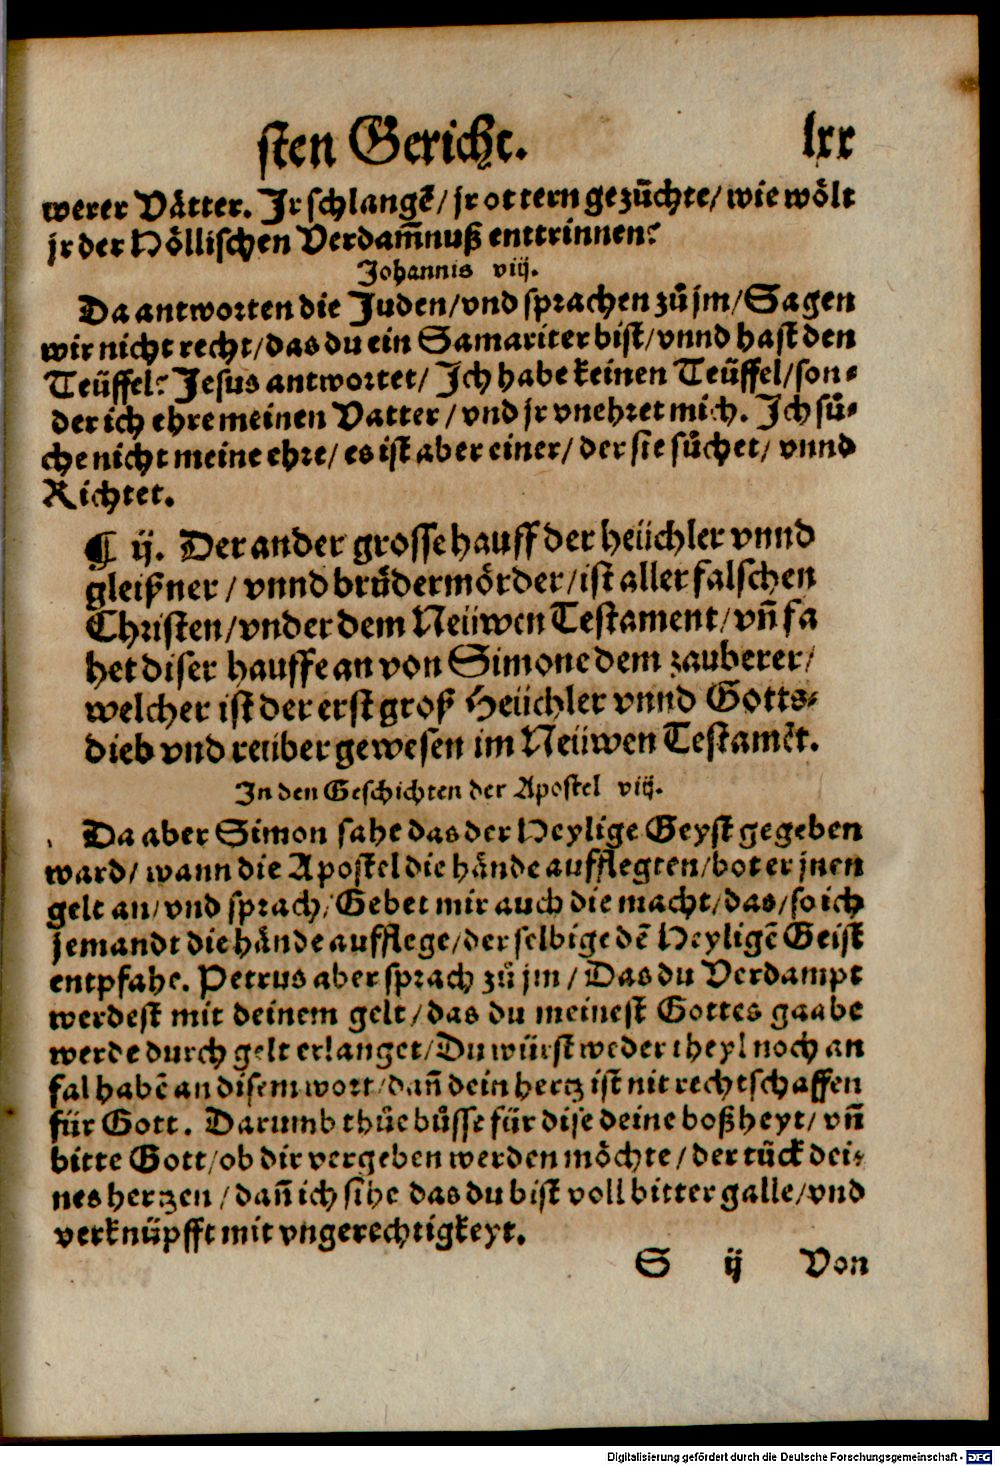 sten Gericht. lxx
werer Vaͤtter. Jr schlangē/ jr ottern gezuͤchte/ wie woͤlt
jr der Hoͤllischen Verdam̄nuß enttrinnen?
Johannis viij.
Da antworten die Juden/ vnd sprachen zuͦ jm/ Sagen
wir nicht recht/ das du ein Samariter bist/ vnnd hast den
Teuͤffel? Jesus antwortet/ Jch habe keinen Teuͤffel/ son⸗
der ich ehre meinen Vatter/ vnd jr vnehret mich. Jch suͦ⸗
che nicht meine ehre/ es ist aber einer/ der sie suͦchet/ vnnd
Richtet.
¶ ij. Der ander grosse hauff der heuͤchler vnnd
gleißner/ vnnd bruͤdermoͤrder/ ist aller falschen
Christen/ vnder dem Neuͤwen Testament/ vn̄ fa
het diser hauffe an von Simone dem zauberer/
welcher ist der erst groß Heuͤchler vnnd Gotts⸗
dieb vnd reuͤber gewesen im Neuͤwen Testamēt.
Jn den Geschichten der Apostel viij.
Da aber Simon sahe das der Heylige Geyst gegeben
ward/ wann die Apostel die haͤnde aufflegten/ bot er jnen
gelt an/ vnd sprach/ Gebet mir auch die macht/ das/ so ich
jemandt die haͤnde aufflege/ der selbige dē Heyligē Geist
entpfahe. Petrus aber sprach zuͦ jm/ Das du Verdampt
werdest mit deinem gelt/ das du meinest Gottes gaabe
werde durch gelt erlanget/ Du wuͤrst weder theyl noch an
fal habē an disem wort/ dan̄ dein hertz ist nit rechtschaffen
fuͤr Gott. Darumb thuͦe buͦsse fuͤr dise deine boßheyt/ vn̄
bitte Gott/ ob dir vergeben werden moͤchte/ der tuͤck dei⸗
nes hertzen/ dan̄ ich sihe das du bist voll bitter galle/ vnd
verknuͤpfft mit vngerechtigkeyt.
S ij Von
Digitalisierung gefördert durch die Deutsche Forschungsgemeinschaft - DFG